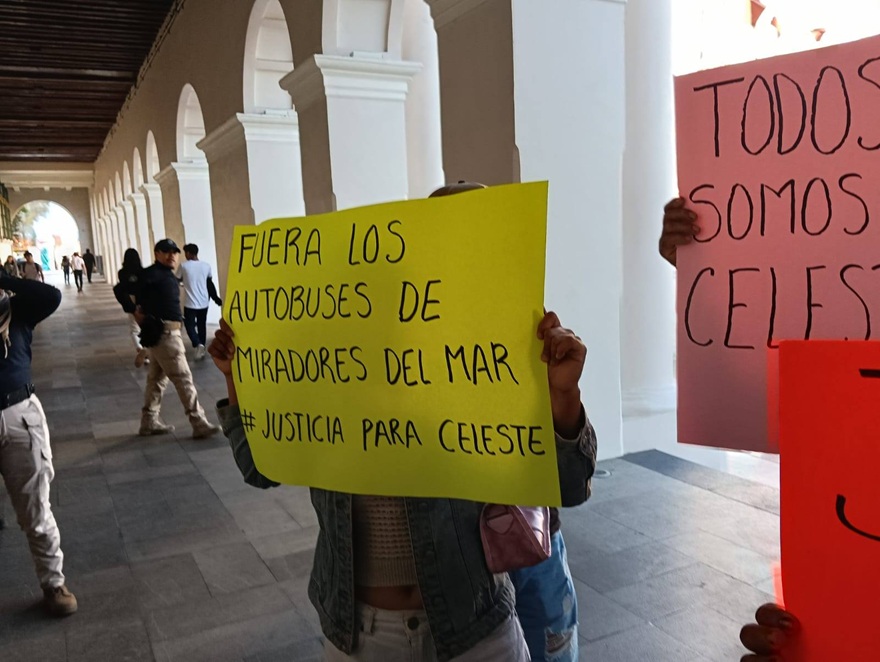 FUERA LOS
AUTOBUSES DE
MIRADORES DEL MAR
# JUSTICIA PARA CELESTE
TODOS
SOMOS
CELEST